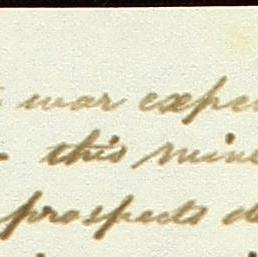 war expe
this mine
prospects d